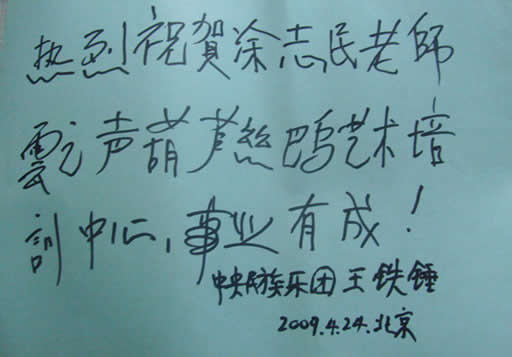 热烈祝贺涂志民老師
雲之声葫芦絲巴乌艺术培
訓中心,事业有成!
中央民族乐团王铁锤
2009.4.24.北京